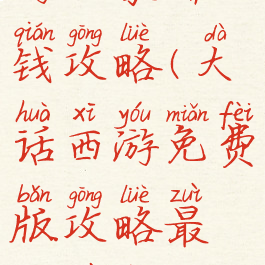 qián gōng lüè dà
钱攻略(大
huà xī yóu miǎn fèi
话西游免费
bǎn gōng lüè zuì
版攻略最